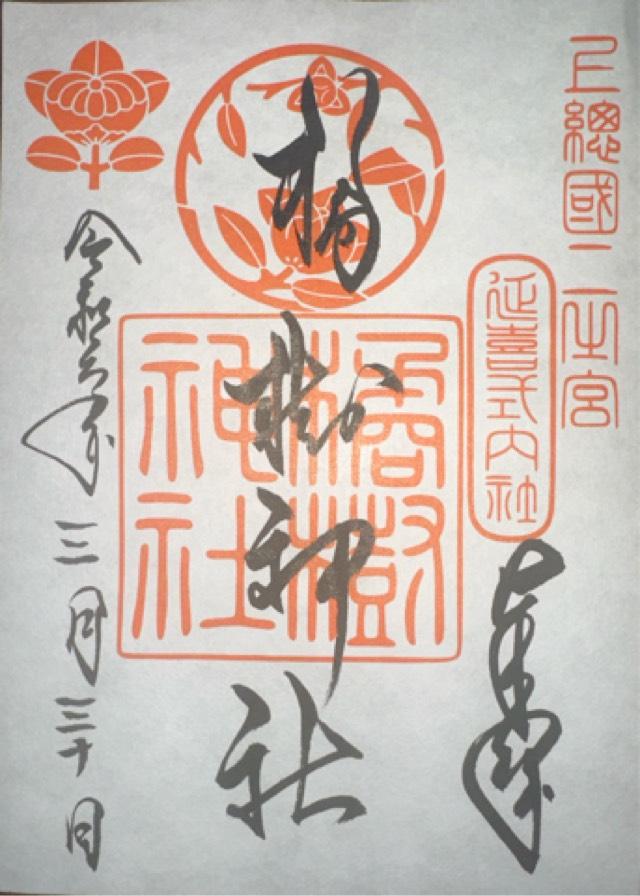 上總國二之宮
延喜式内社
奉拝
橘樹神社
橘樹神社
令和六年三月三十日